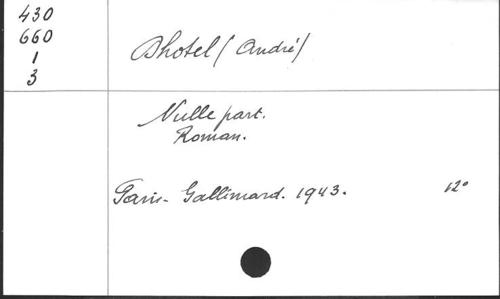 430
660
1
3
Dhotel (André)
Nulle part.
Roman.
Paris- Gallimard. 1943.
12°